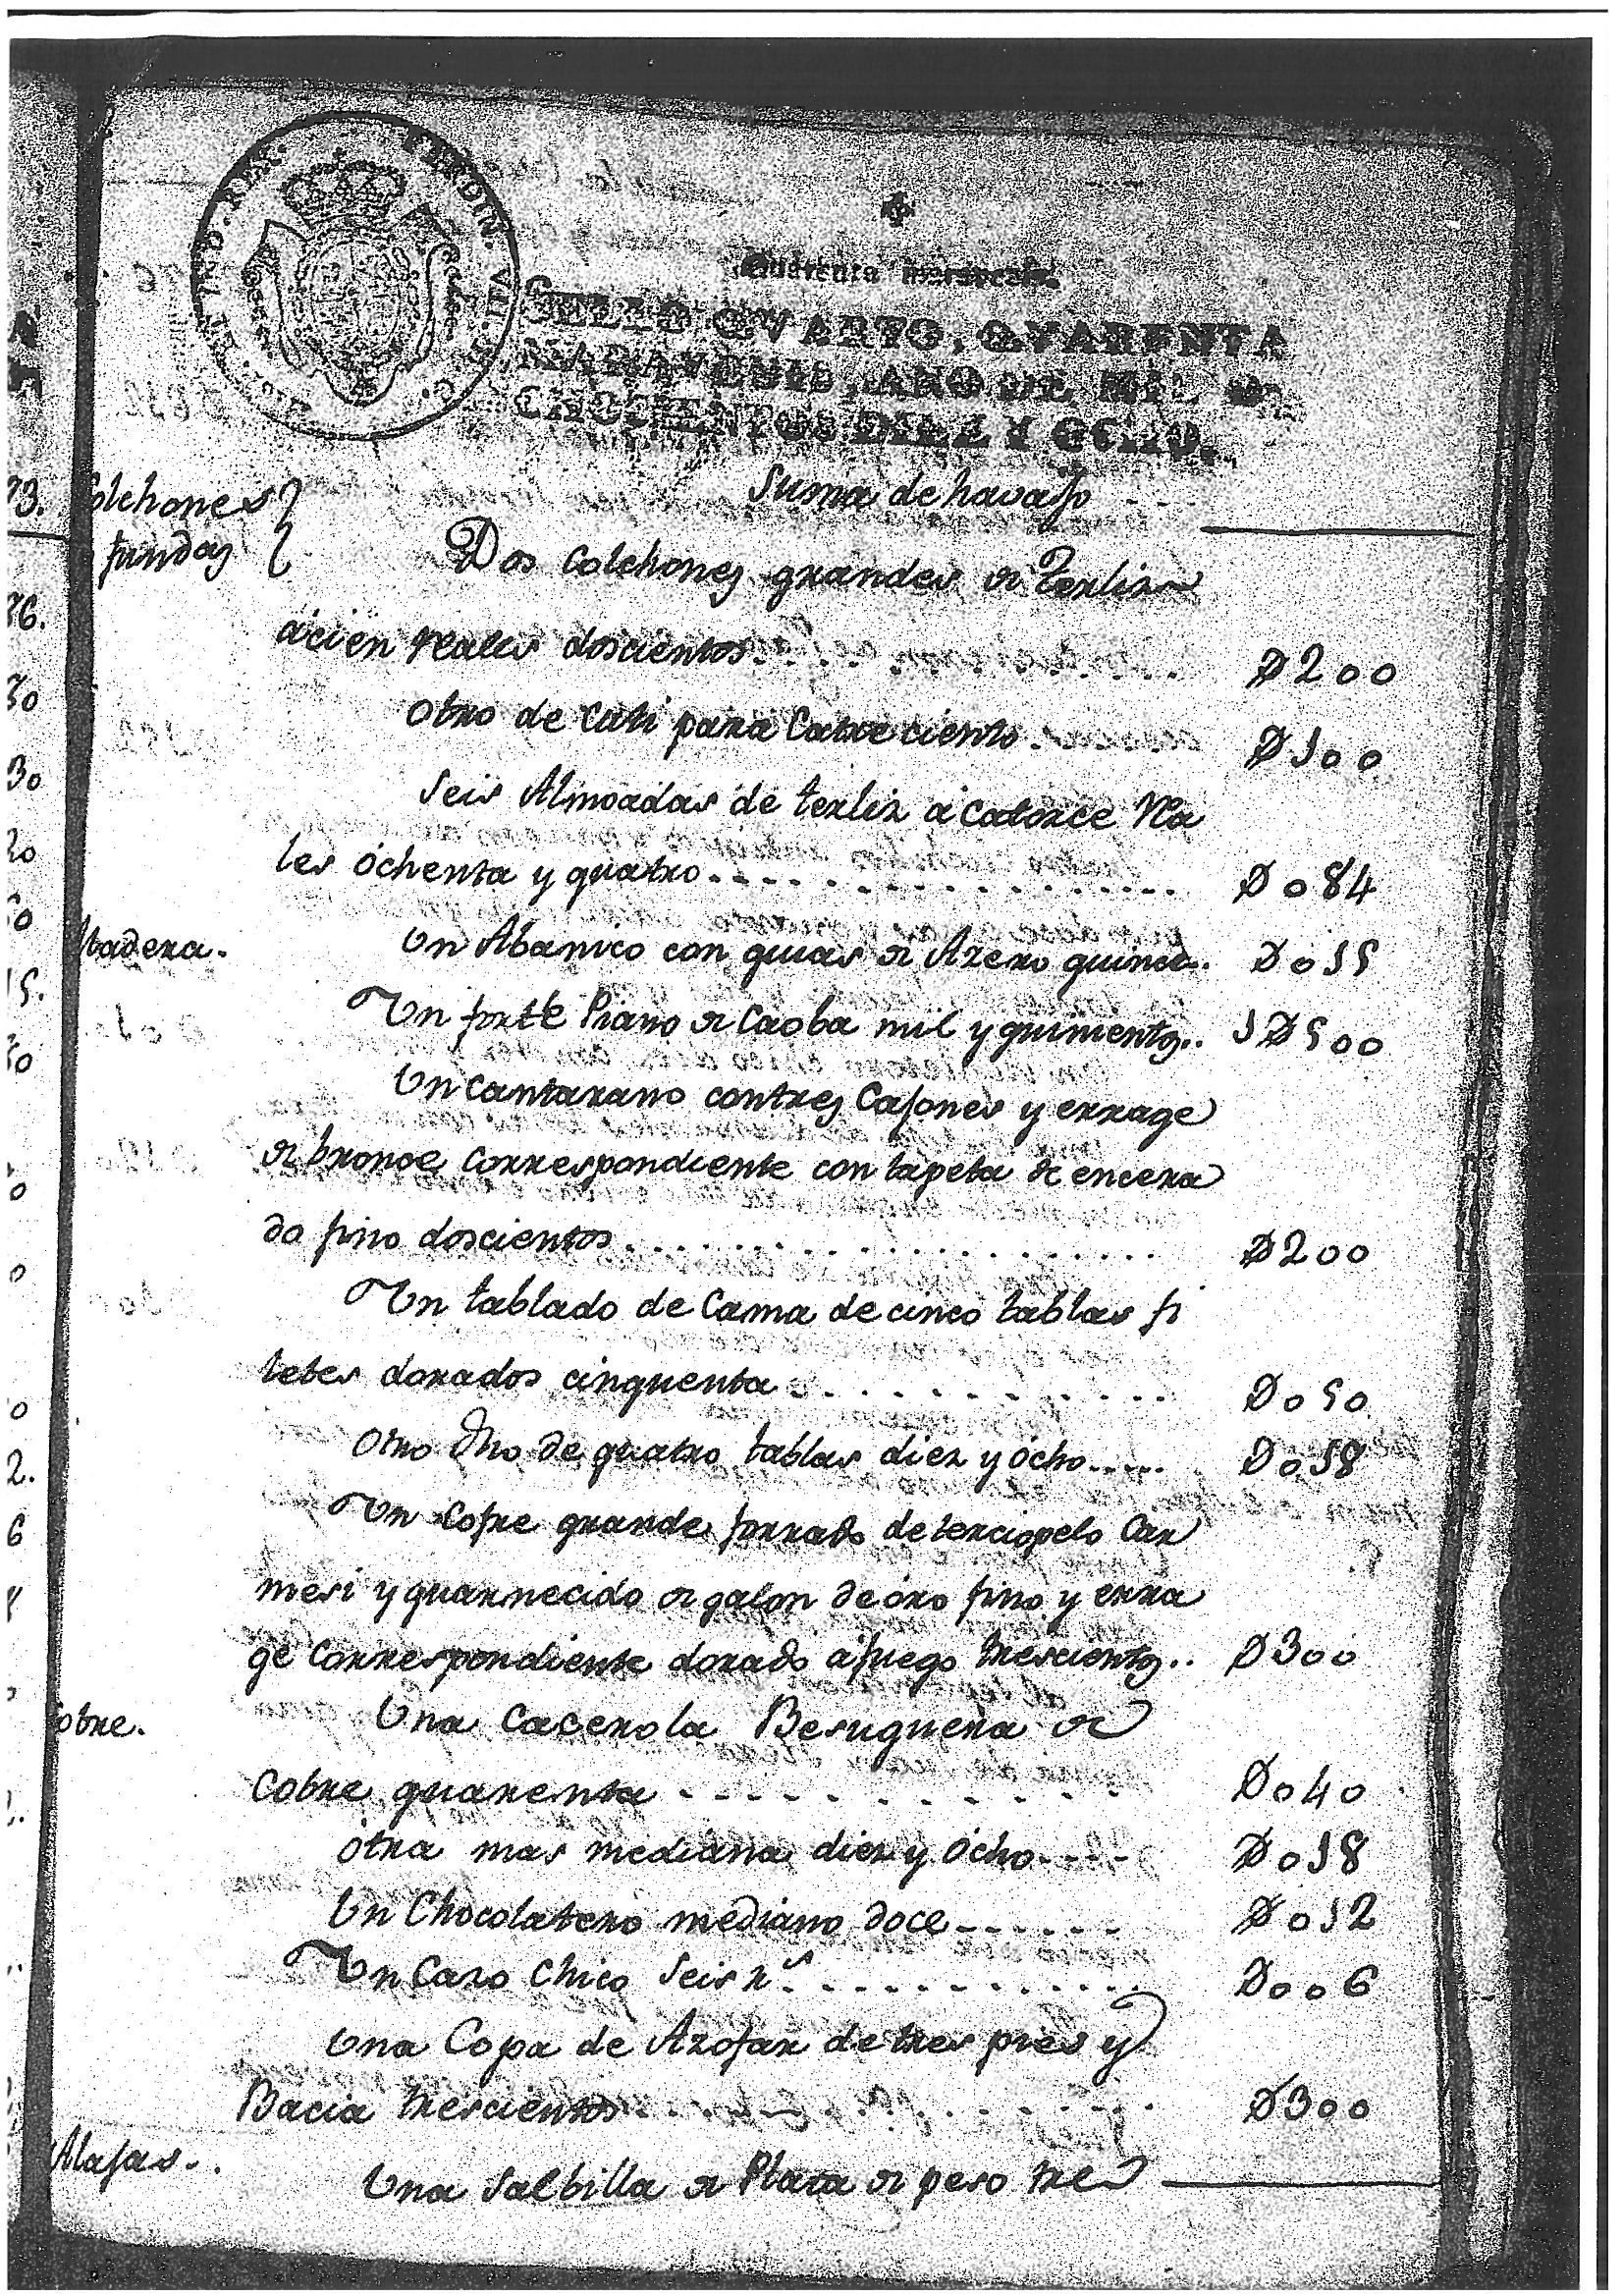 Quarenta maravedis.
SELLO QVARTO, QVARENTA
MARAVEDIS, AÑO DE MIL O-
CHOCIENTOS DIEZ Y OCHO.
Suma de la
Colchones
fundas
Dos Colchones grandes de Terliz
á cien reales doscientos D200
Otro de Cati para Catre ciento D100
Seis Almoadas de terliz á catorce Rea
les óchenta y quatro D084
Madera.
Un Abanico con guias de Azero quince D015
Un forte Piano de Caoba mil y quinientos 1D500
Un Cantarano con tres Cajones y errage
de bronce correspondiente con tapeta de encera
do fino doscientos D200
Un tablado de Cama de cinco tablas fi
letes dorados cinquenta D050
Otro dho de quatro tablas diez y ócho D018
Un Cofre grande forrado de terciopelo Car
mesi y guarnecido de galon de óro fino y erra
ge Correspondiente dorado á fuego trescientos D300
Cobre.
Una Cacerola Besuguera de
Cobre quarenta D040
ótra mas mediana diez y ócho D018
Un Chocolatero mediano doce D012
Un Cazo Chico Seis rs D006
Una Copa de Azofar de tres pies y
Bacia trescientos D300
Alajas
Una Salbilla de Plata de peso tres